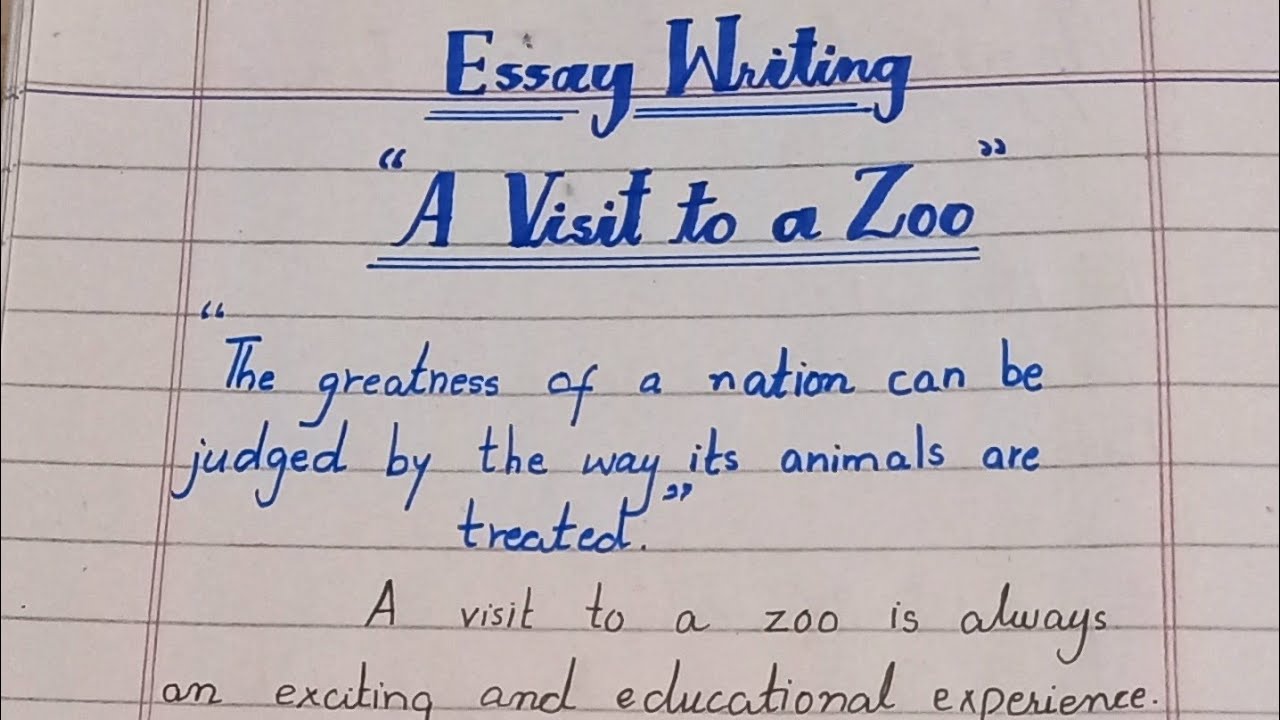 Essay Writing
"A Visit to a Zoo"
"The greatness of a nation can be
judged by the way its animals are
treated."
A visit to a zoo is always
an exciting and educational experience.